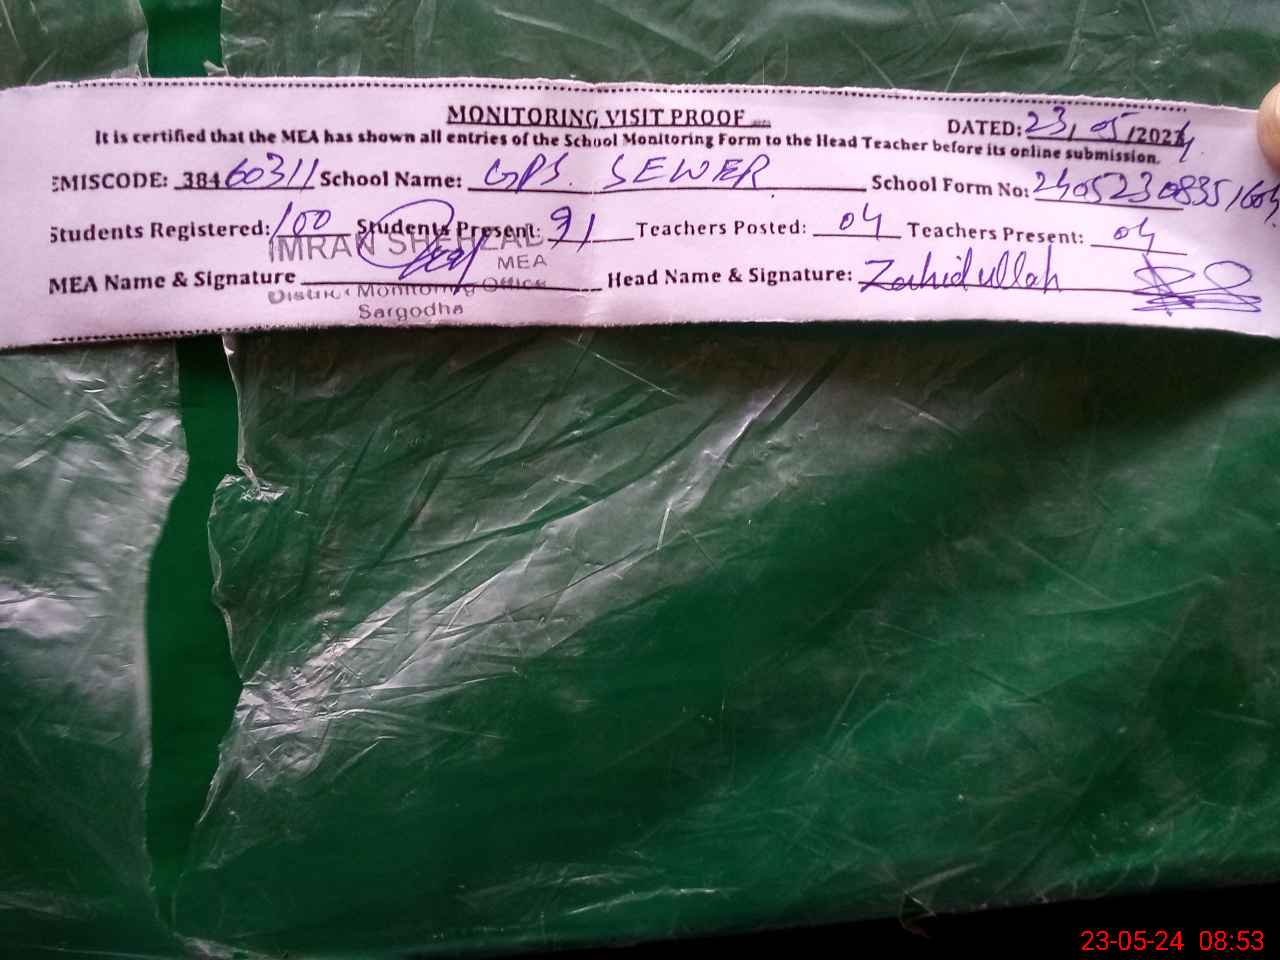 MONITORING VISIT PROOF
DATED: 23/05/2024
It is certified that the MEA has shown all entries of the School Monitoring Form to the Head Teacher before its online submission.
EMISCODE: 38460311 School Name: GPS. SEWER School Form No:
Students Registered: 100 Students Present: 91 Teachers Posted: 04 Teachers Present: 04
IMRAN SHEHZAD
MEA
MEA Name & Signature Head Name & Signature: Zahidullah
District Monitoring Office
Sargodha
23-05-24 08:53